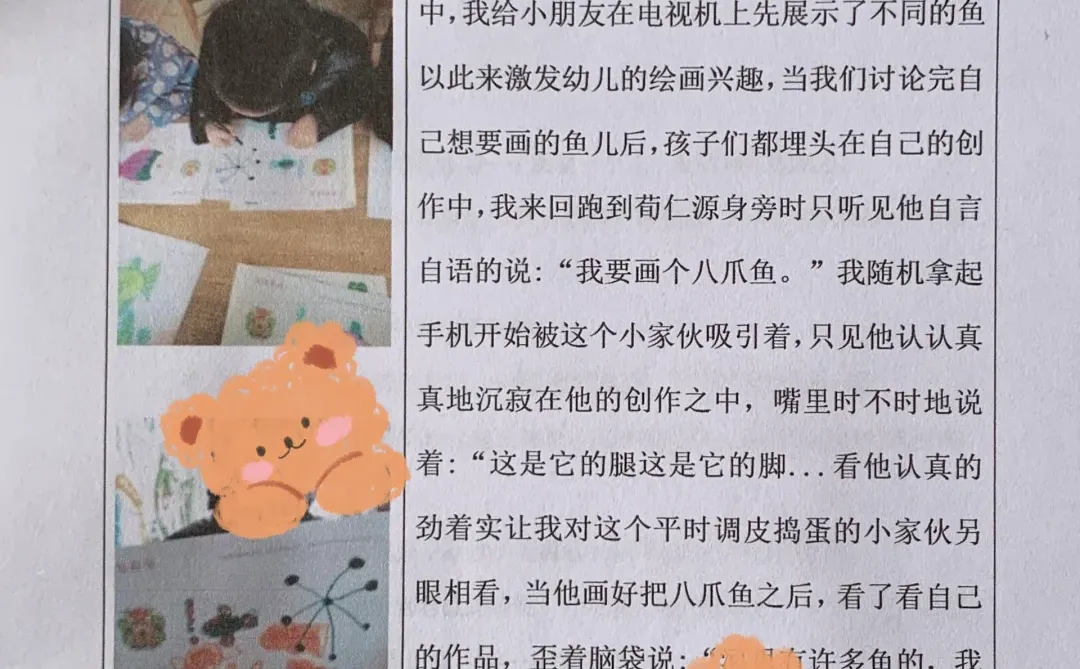 中，我给小朋友在电视机上先展示了不同的鱼
以此来激发幼儿的绘画兴趣，当我们讨论完自
己想要画的鱼儿后，孩子们都埋头在自己的创
作中，我来回跑到荀仁源身旁时只听见他自言
自语的说：“我要画个八爪鱼。”我随机拿起
手机开始被这个小家伙吸引着，只见他认认真
真地沉寂在他的创作之中，嘴里时不时地说
着：“这是它的腿这是它的脚...看他认真的
劲着实让我对这个平时调皮捣蛋的小家伙另
眼相看，当他画好把八爪鱼之后，看了看自己
的作品，歪着脑袋说：“有许多鱼的，我